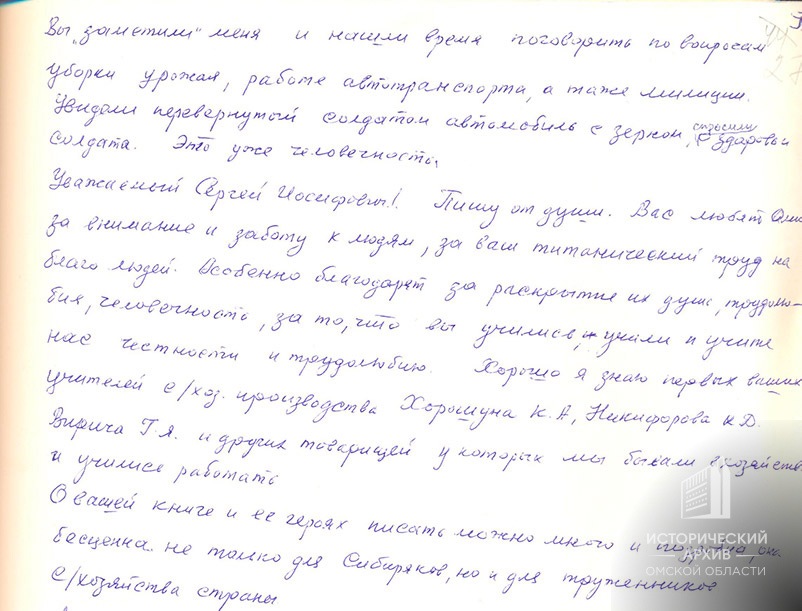 Вы „заметили" меня и нашли время поговорить по вопросам
уборки урожая, работе автотранспорта, а также милиции.
Увидели перевернутый солдатом автомобиль с зерном, спросили о здоровьи
солдата. Это уже человечность.
Уважаемый Сергей Иосифович! Пишу от души. Вас любят
за внимание и заботу к людям, за ваш титанический труд на
благо людей. Особенно благодарят за раскрытие их душ, трудолю-
бия, человечность, за то, что вы учились, учили и учите
нас честности и трудолюбию. Хорошо я знаю первых ваших
учителей с/хоз. производства Хорошуна К.А, Никифорова К.Д.
Вирича Г.Я. и других товарищей у которых мы бывали в хозяйствах
и учились работать
О вашей книге и ее героях писать можно много и подробно, она
бесценна не только для Сибиряков, но и для тружеников
с/хозяйства страны
ИСТОРИЧЕСКИЙ
АРХИВ
ОМСКОЙ ОБЛАСТИ